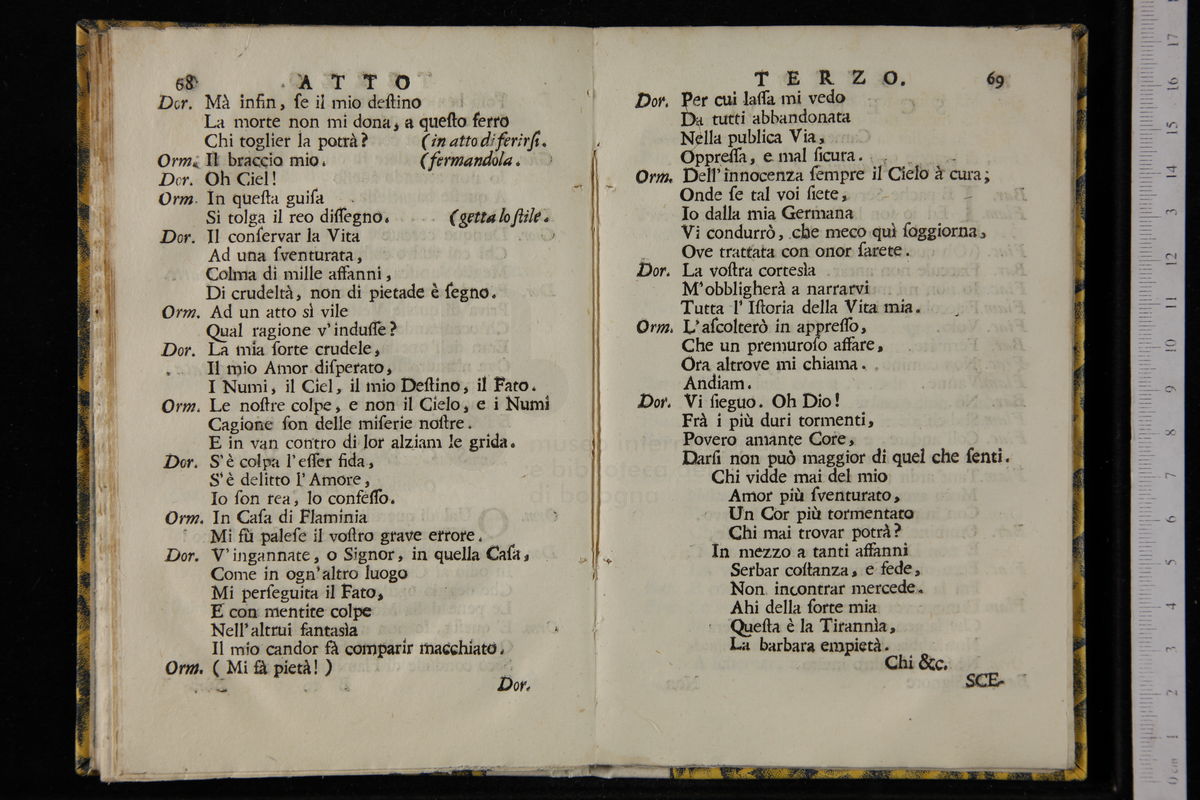 68 ATTO
Dor. Mà infin, ſe il mio deſtino
La morte non mi dona, a queſto ferro
Chi toglier la potrà? (in atto di ferirſi.
Orm. Il braccio mio. (fermandola.
Dor. Oh Ciel!
Orm. In queſta guiſa
Si tolga il reo diſſegno. (getta lo ſtile.
Dor. Il conſervar la Vita
Ad una ſventurata,
Colma di mille affanni,
Di crudeltà, non di pietade è ſegno.
Orm. Ad un atto sì vile
Qual ragione v'induſſe?
Dor. La mia ſorte crudele,
Il mio Amor diſperato,
I Numi, il Ciel, il mio Deſtino, il Fato.
Orm. Le noſtre colpe, e non il Cielo, e i Numi
Cagione ſon delle miſerie noſtre.
E in van contro di lor alziam le grida.
Dor. S'è colpa l'eſſer fida,
S'è delitto l'Amore,
Io ſon rea, lo confeſſo.
Orm. In Caſa di Flaminia
Mi fù paleſe il voſtro grave errore.
Dor. V'ingannate, o Signor, in quella Caſa,
Come in ogn'altro luogo
Mi perſeguita il Fato,
E con mentite colpe
Nell'altrui fantasìa
Il mio candor fà comparir macchiato.
Orm. ( Mi fà pietà! )
Dor.
TERZO. 69
Dor. Per cui laſſa mi vedo
Da tutti abbandonata
Nella publica Via,
Oppreſſa, e mal ſicura.
Orm. Dell'innocenza ſempre il Cielo à cura;
Onde ſe tal voi ſiete,
Io dalla mia Germana
Vi condurrò, che meco quì ſoggiorna,
Ove trattata con onor ſarete.
Dor. La voſtra cortesìa
M'obbligherà a narrarvi
Tutta l'Iſtoria della Vita mia.
Orm. L'aſcolterò in appreſſo,
Che un premuroſo affare,
Ora altrove mi chiama.
Andiam.
Dor. Vi ſieguo. Oh Dio!
Frà i più duri tormenti,
Povero amante Core,
Darſi non può maggior di quel che ſenti.
Chi vidde mai del mio
Amor più ſventurato,
Un Cor più tormentato
Chi mai trovar potrà?
In mezzo a tanti affanni
Serbar coſtanza, e fede,
Non incontrar mercede.
Ahi della ſorte mia
Queſta è la Tirannìa,
La barbara empietà.
Chi &c.
SCE-